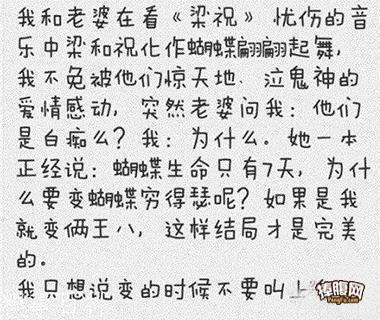 我和老婆在看《梁祝》忧伤的音
乐中梁和祝化作蝴蝶翩翩起舞，
我不免被他们惊天地、泣鬼神的
爱情感动，突然老婆问我：他们
是白痴么？我：为什么。她一本
正经说：蝴蝶生命只有7天，为什
么要变蝴蝶穷得瑟呢？如果是我
就变俩王八，这样结局才是完美
的。
我只想说变的时候不要叫上
捧腹网
PengFu.com